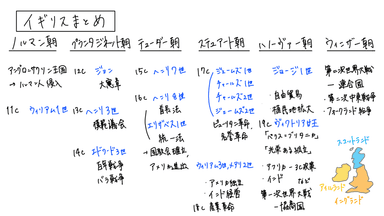 イギリスまとめ
ノルマン朝
アングロ=サクソン王国
→ノルマン人侵入
11c ウィリアム1世
プランタジネット朝
12c ジョン
大憲章
13c ヘンリ3世
模範議会
14c エドワード3世
百年戦争
バラ戦争
テューダー朝
15c ヘンリ7世
16c ヘンリ8世
首長法
エリザベス1世
統一法
→国教会確立
アメリカ進出
ステュアート朝
17c ジェームズ1世
チャールズ1世
チャールズ2世
ジェームズ2世
ピューリタン革命
名誉革命
ウィリアム3世、メアリ2世
・アメリカ独立
・インド経営
18c 産業革命
ハノーヴァー朝
ジョージ1世
・自由貿易
・植民地拡大
19c ヴィクトリア女王
"パクス=ブリタニカ"
"光栄ある孤立"
・アフリカ
・インド など
第一次世界大戦
―協商国
ウィンザー朝
第二次世界大戦
―連合国
・第二次中東戦争
・フォークランド戦争
スコットランド
アイルランド
イングランド